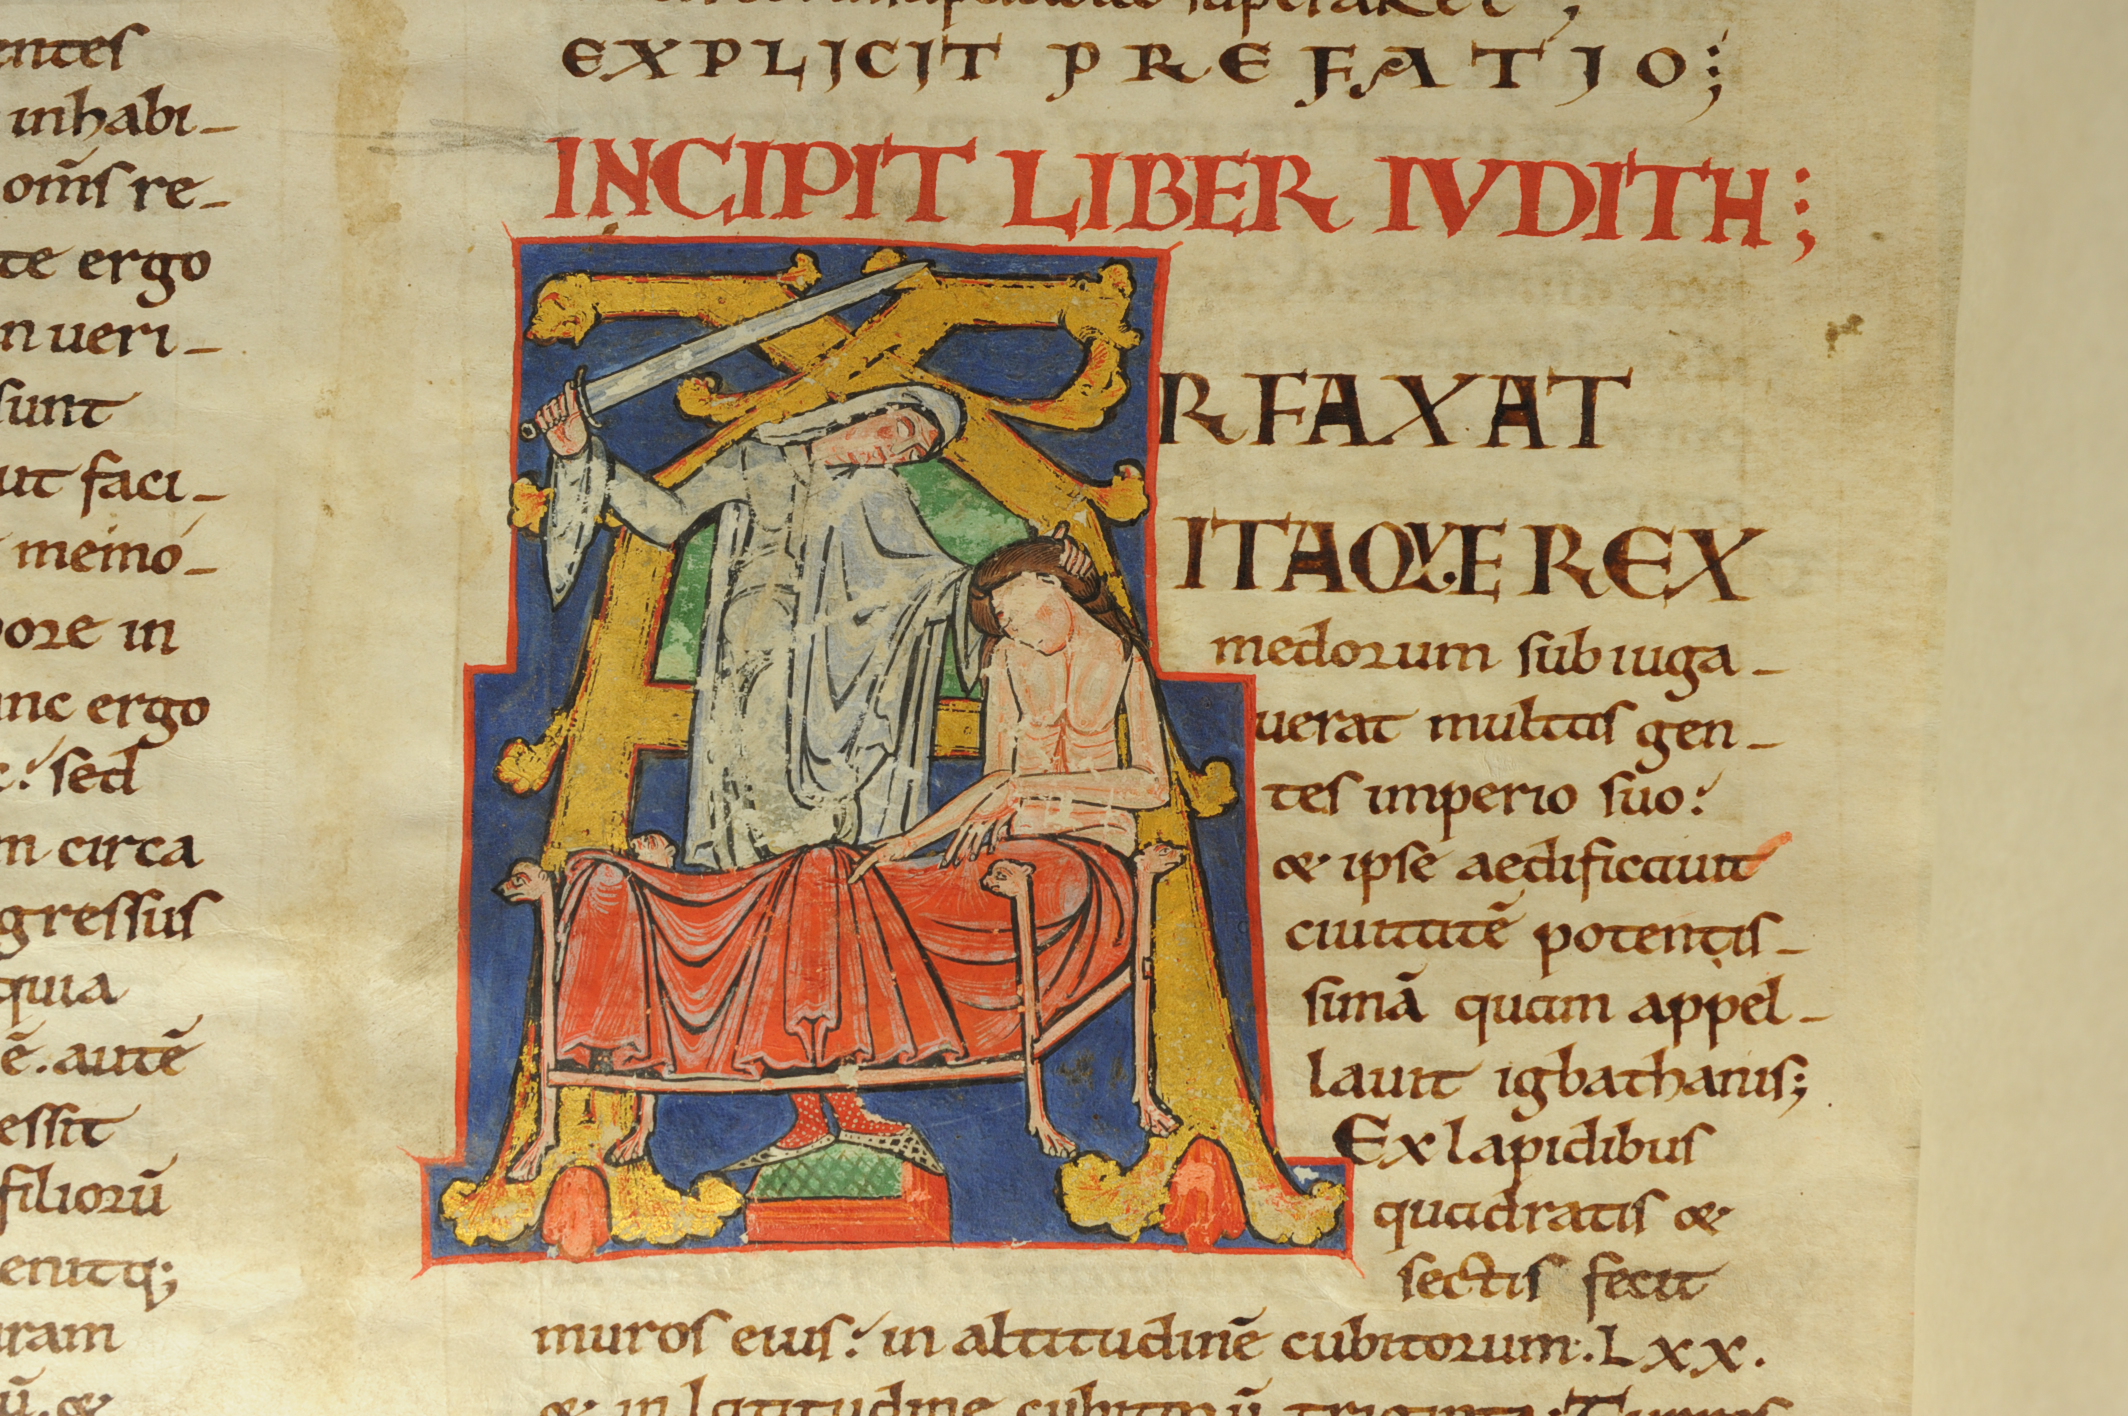 entes
inhabi-
om̅s re-
te ergo
n ueri-
sunt
ut faci-
memo-
pore in
unc ergo
sed
m circa
gressus
quia
ē. autē
essit
filiorū
enitq;
uram
ū. &
EXPLICIT PREFATIO;
INCIPIT LIBER IVDITH;
ARFAXAT
ITAQVE REX
medorum subiuga-
uerat multas gen-
tes imperio suo:
& ipse aedificauit
ciuitatē potentis-
simā quam appel-
lauit igbathanis;
Ex lapidibus
quadratis &
sectis fecit
muros eius: in altitudinē cubitorum. LXX.
& in latitudine cubitorū triginta: Turres